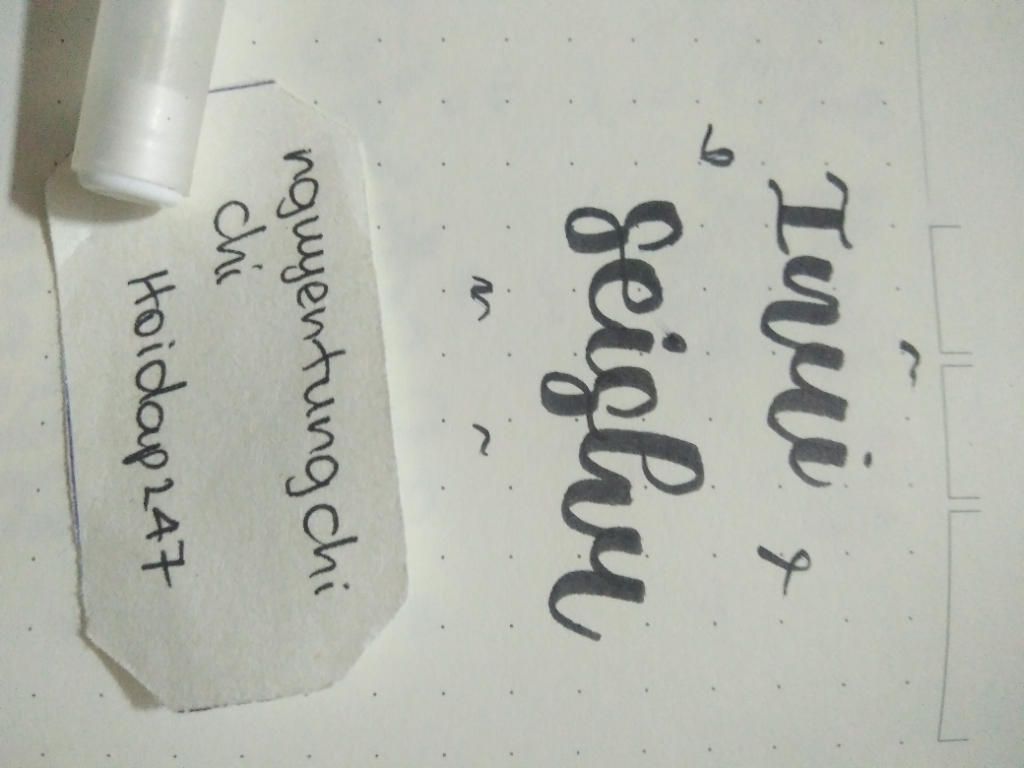 Inui
Seishu
nguyentungchi
chi
Hoidap247